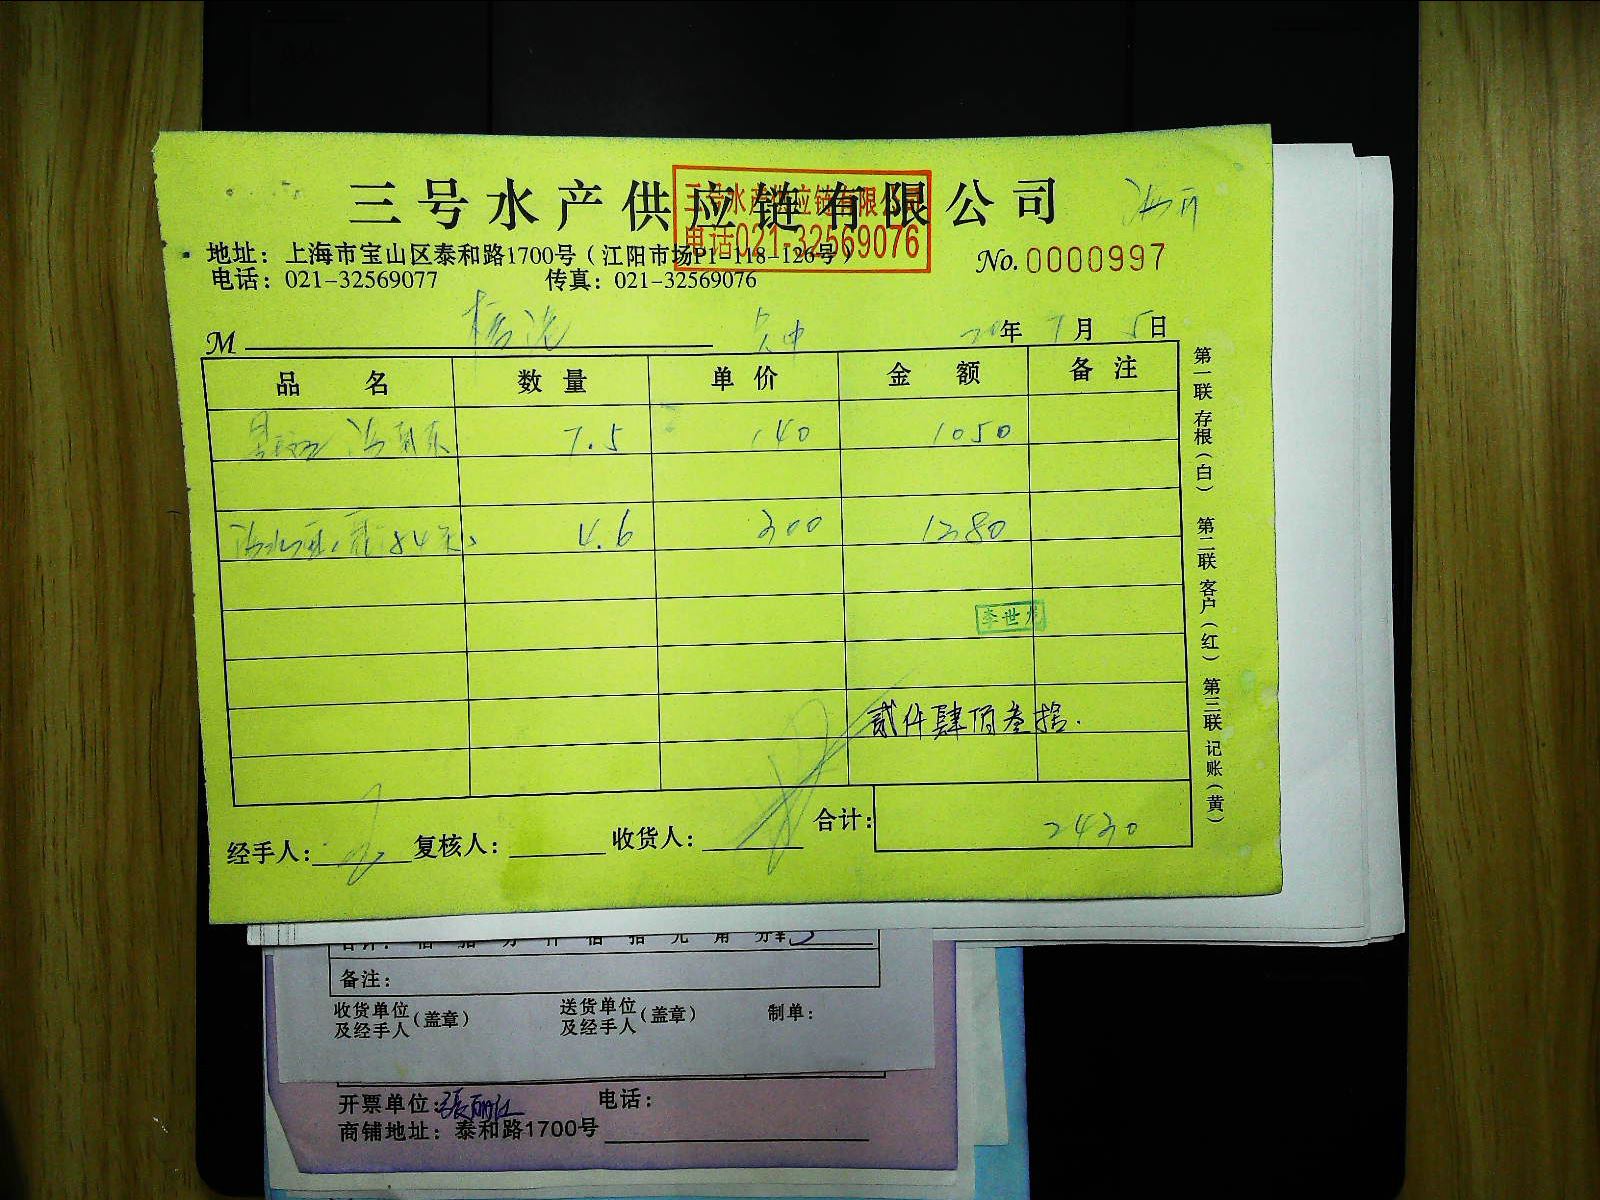 三号水产供应链有限公司
三号水产供应链有限公司
电话021-32569076
地址：上海市宝山区泰和路1700号（江阳市场P1-118-126号）
No.0000997
电话：021-32569077 传真：021-32569076
M
年 7月 5日
品名 数量 单价 金额 备注
7.5 140 1050
4.6 300 1380
李世光
贰仟肆佰叁拾.
合计： 2430
经手人： 复核人： 收货人：
第一联 存根（白） 第二联 客户（红） 第三联 记账（黄）
合计： 佰 拾 万 仟 佰 拾 元 角 分¥
备注：
收货单位及经手人（盖章） 送货单位及经手人（盖章） 制单：
开票单位： 电话：
商铺地址：泰和路1700号